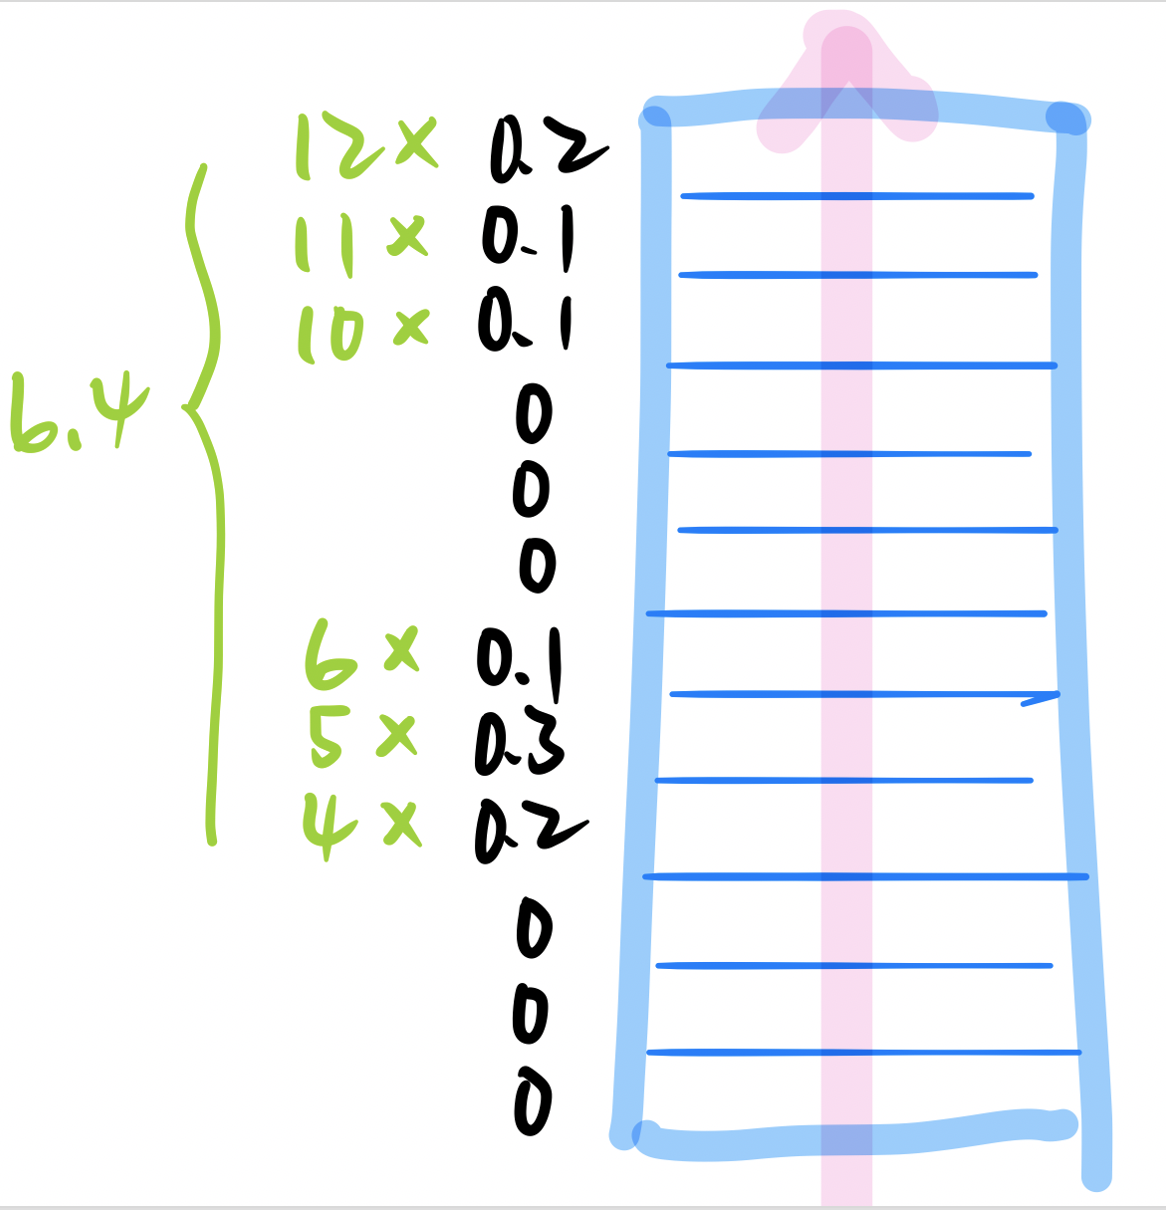 12× 0.2
11× 0.1
10× 0.1
0
6.4
0
0
6× 0.1
5× 0.3
4× 0.2
0
0
0